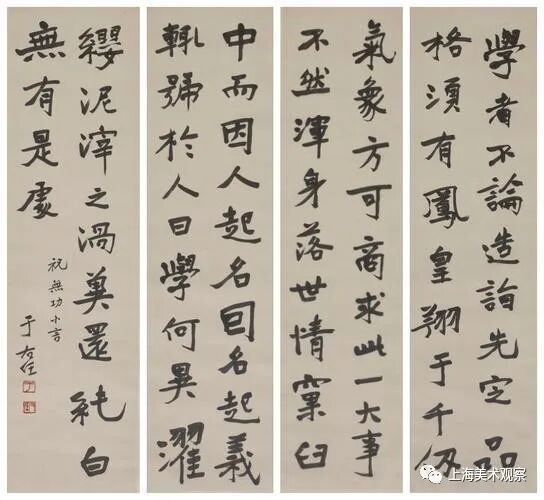 學者不論造詣先定品
格須有鳳皇翔于千仞
氣象方可商求此一大事
不然渾身落世情窠臼
中而因人起名囙名起義
輒號於人曰學何異濯
纓泥滓之渦冀還純白
無有是處
祝無功小言
于右任
上海美术观察